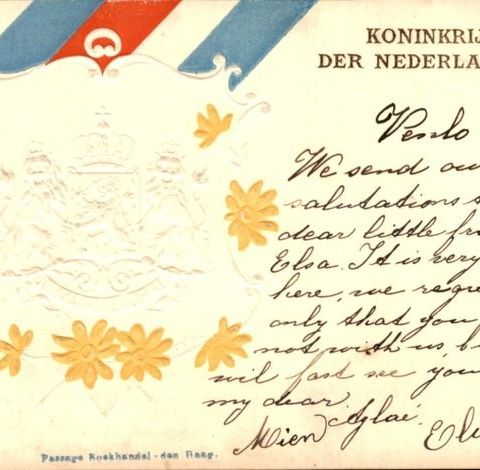 KONINKRIJ
DER NEDERLA
Venlo
We send ou
salutations
dear little fr
Elsa. It is very
here, we regre
only that you
not with us, b
wil fast see you
my dear.
Mien Aglaé.
Passage Boekhandel - den Haag.